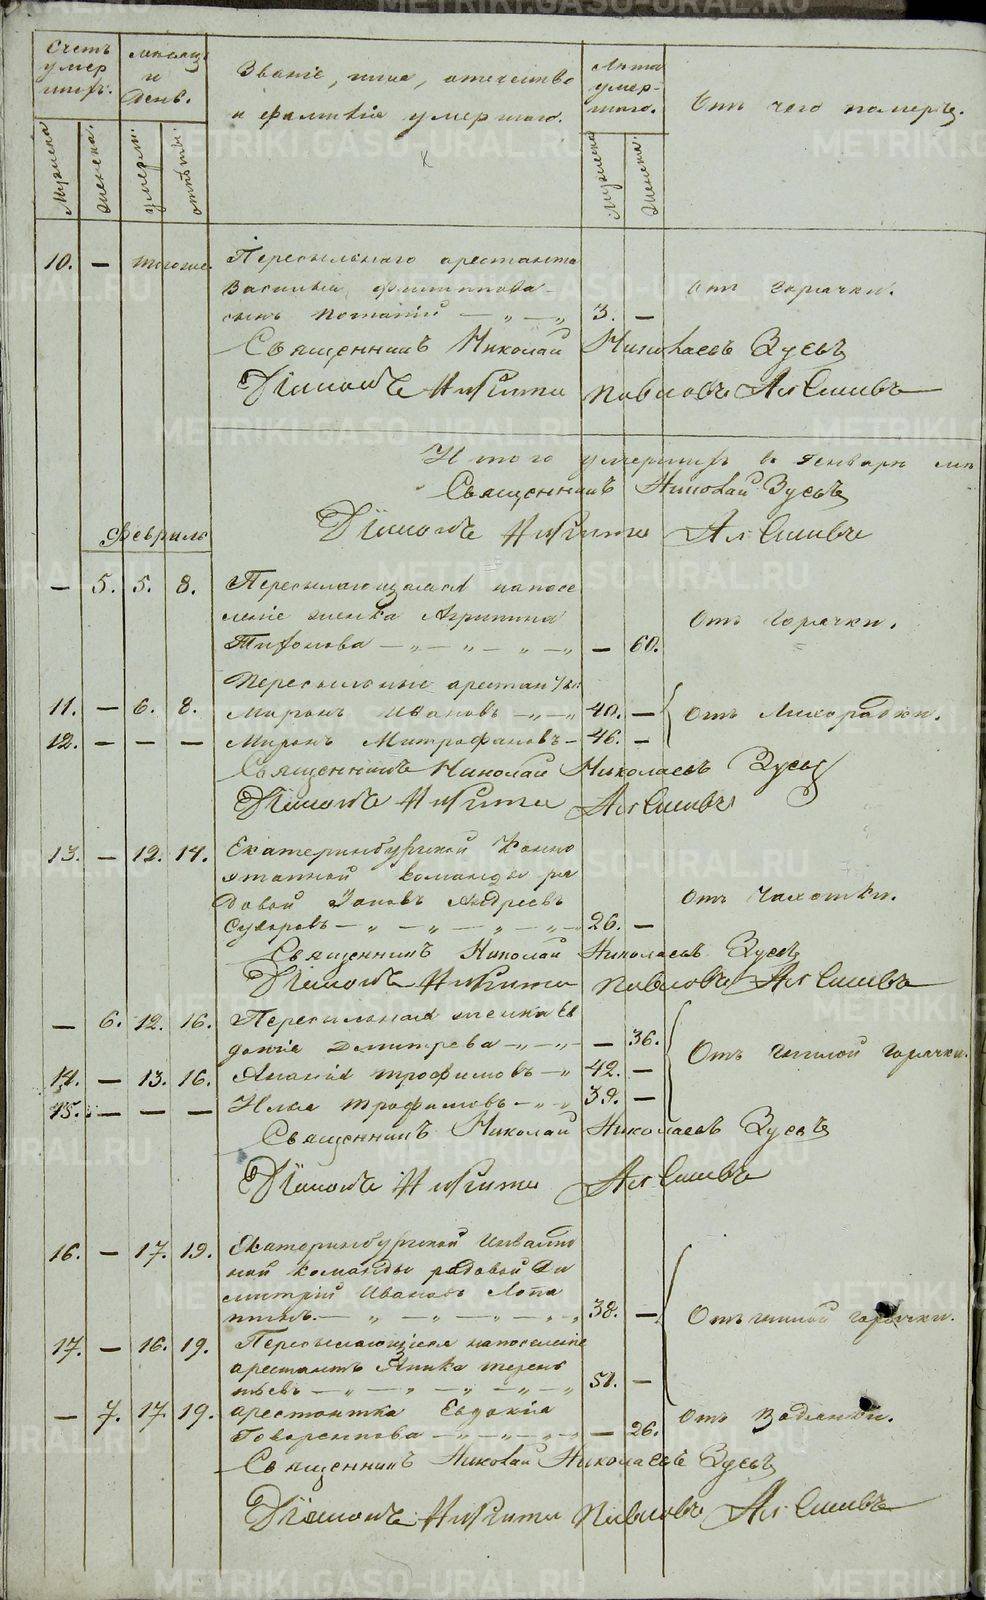 METRIKI.GASO-URAL.RU
Счетъ умер
шихъ.
Мѣсяцъ
и
день.
Званіе, имя, отечество
и фамилія умершаго.
Лѣта
умер-
шаго.
Отъ чего померъ.
Мужеска
женска.
умерт.
Мужеска
женска.
10. — тогоже.
Пересыльнаго арестанта
Василья Филиппова
сынъ — „ — „ 3. —
отъ горячки.
Священникъ Николай Николаевъ
Діаконъ Никита Павловъ
Итого умершихъ в Генварѣ
Священникъ Николай
Діаконъ Никита
Февраль
— 5. 5. 8. Пересылающаяся на посе
леніе женка Агрипина
— „ — „ — „ — „ — 60.
Отъ горячки.
Пересыльные арестанты
11. — 6. 8. Миронъ Ивановъ — „ — „ 40. —
Отъ Лихорадки.
12. — — — Миронъ Митрофановъ — 46. —
Священникъ Николай Николаевъ
Діаконъ Никита
13. — 12. 14. Екатеринбургской Конно
этапной команды ря
довой Андреевъ
Суворовъ — „ — „ — „ — „ 26. —
отъ Чахотки.
Священникъ Николай Николаевъ
Діаконъ Никита Павловъ
— 6. 12. 16. Пересыльная женка Ев
докія Димитрева — „ — „ — 36.
Отъ гнилой горячки.
14. — 13. 16. Ананій Трофимовъ — „ 42. —
15. — — — Илья Трофимовъ — „ — „ 39. —
Священникъ Николай Николаевъ
Діаконъ Никита
16. — 17. 19. Екатеринбургской Инвалид
ной команды рядовой Ди
митрій Ивановъ Лопа
тинъ. — „ — „ — „ — „ 38. —
Отъ гнилой горячки.
17. — 16. 19. Пересылающійся на поселеніе
арестантъ Аника Терень
тьевъ — „ — „ — „ — „ 51. —
— 7. 17. 19. арестантка Евдокія
— „ — „ — „ — 26.
Отъ Водянки.
Священникъ Николай Николаевъ
Діаконъ Никита Павловъ